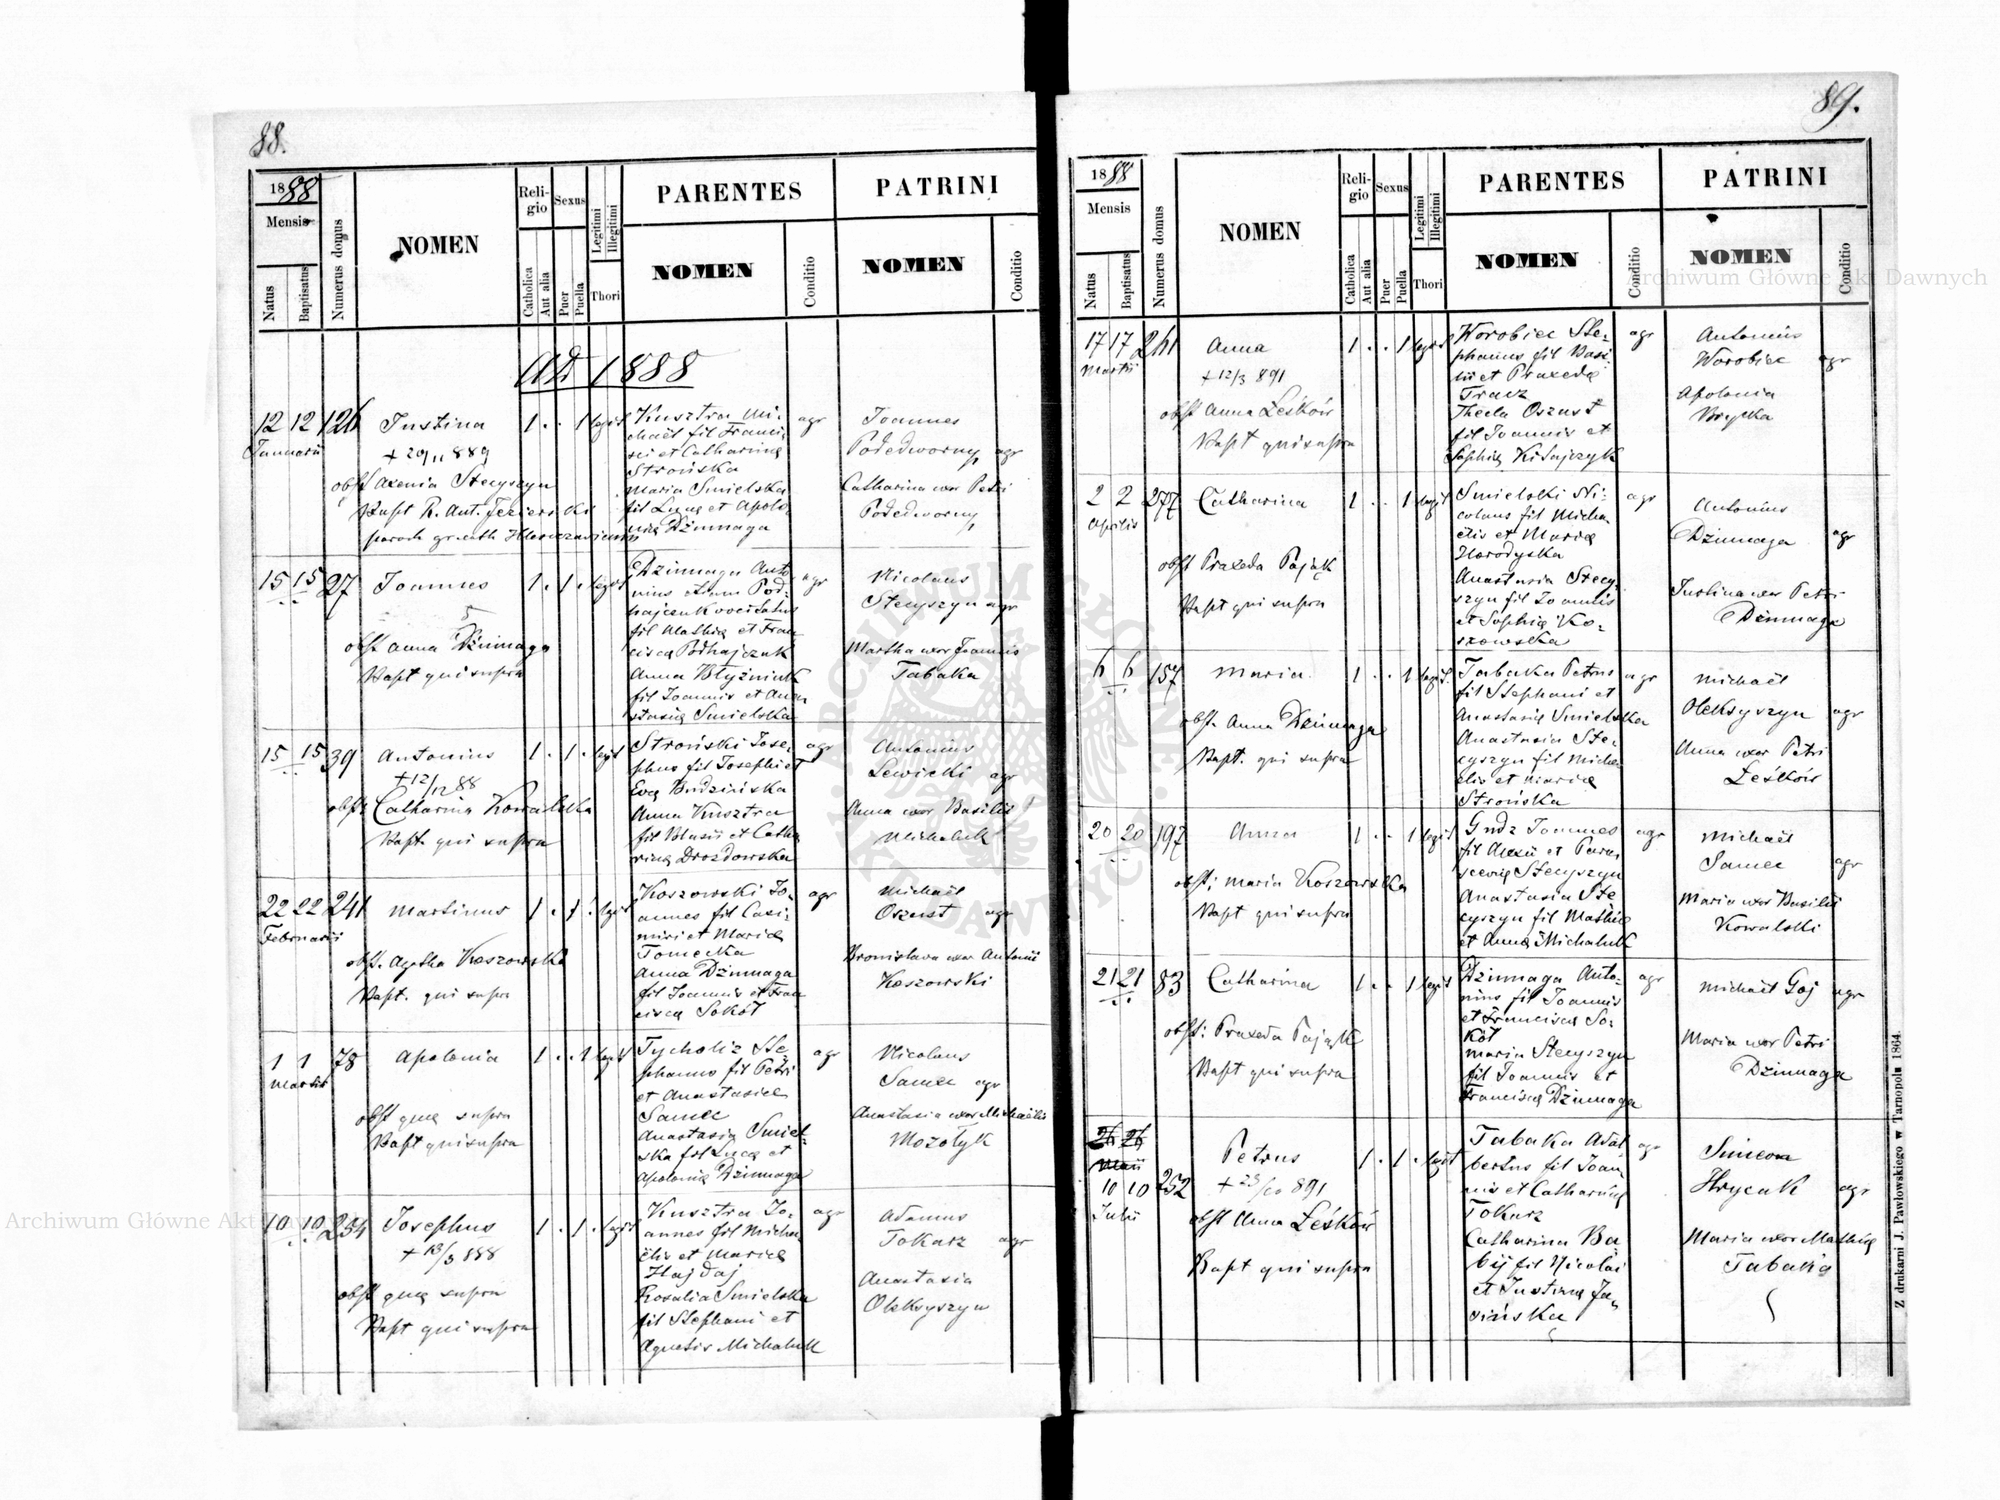 88.
1888
Mensis
Natus
Baptisatus
Numerus domus
NOMEN
Religio
Catholica
Aut alia
Sexus
Puer
Puella
Legitimi
Illegitimi
Thori
PARENTES
NOMEN
Conditio
PATRINI
NOMEN
Conditio
AD 1888
12 12 126
Januarii
Justina
obst Axenia Stecyszyn
Bapt R. Ant.
1 . . 1 legit
Kusztra Mi-
chaël fil Franci-
sci et Catharina
Strońska
Maria Smielska
fil Luca et Apolo-
nia Dziumaga
agr
Joannes
Podedworny agr
Catharina uxor Petri
Podedworny
15 15 27
Joannes
obst Anna Dziumaga
Bapt qui supra
1 . 1 . legit
Dziumaga Anto-
nius
fil Mathia et Fran-
cisca Podhajczuk
fil Joannis et Ana-
stasia Smielska
agr
Nicolaus
Stecyszyn agr
Martha uxor Joannis
Tabaka
15 15 39
Antonius
+ 12/12 88
obst: Catharina Kowalska
Bapt. qui supra
1 . 1 . legit
Stroński Jose-
phus fil Josephi et
Eva Budzińska
Anna Kusztra
fil Blasii et Catha-
rina Drozdowska
agr
Antonius
Lewicki agr
Anna uxor Basilii
Michaluk
22 22 241
Februarii
Martinus
obst. Agatha Koszowska
Bapt. qui supra
1 . 1 . legit
Koszowski Jo-
annes fil Casi-
miri et Maria
Tomecka
Anna Dziumaga
fil Joannis et Fran-
cisca Sokół
agr
Michaël
Oszust agr
Bronislava uxor Antonii
Koszowski
1 1 78
Martii
Apolonia
obst qua supra
Bapt qui supra
1 . . 1 legit
Tycholiz Ste-
phanus fil Petri
et Anastasia
Samec
Anastasia Smiel-
ska fil Luca et
Apolonia Dziumaga
agr
Nicolaus
Samec agr
Anastasia uxor Michaëlis
Mozołyk
10 10 254
Josephus
+ 13/3 888
obst qua supra
Bapt qui supra
1 . 1 . legit
Kusztra Jo-
annes fil Micha-
ëlis et Maria
Hajdaj
Rosalia Smielska
fil Stephani et
Agnetis Michaluk
agr
Adamus
Tokarz agr
Anastasia
Oleksyszyn
89.
1888
Mensis
Natus
Baptisatus
Numerus domus
NOMEN
Religio
Catholica
Aut alia
Sexus
Puer
Puella
Legitimi
Illegitimi
Thori
PARENTES
NOMEN
Conditio
PATRINI
NOMEN
Conditio
17 17 261
Martii
Anna
+ 12/3 891
obst Anna Leśków
Bapt qui supra
1 . . 1 legit
Worobiec Ste-
phanus fil Basi-
lii et Praxeda
Tracz
Thecla Oszust
fil Joannis et
Sophia Kitajczyk
agr
Antonius
Worobiec agr
Apolonia
Brytka
2 2 277
Aprilis
Catharina
obst Praxeda Pająk
Bapt qui supra
1 . . 1 legit
Smielski Ni-
colaus fil Micha-
ëlis et Maria
Horodyska
Anastasia Stecy-
szyn fil Joannis
et Sophia Ko-
szowska
agr
Antonius
Dziumaga agr
Justina uxor Petri
Dziumaga
6 6 157
Maria
obst. Anna Dziumaga
Bapt. qui supra
1 . . 1 legit.
Tabaka Petrus
fil Stephani et
Anastasia Smielska
Anastasia Ste-
cyszyn fil Micha-
ëlis et Maria
Strońska
agr
Michaël
Oleksyszyn agr
Anna uxor Petri
Leśków
20 20 197
Anna
obst; Maria Koszowska
Bapt qui supra
1 . . 1 legit
Gudz Joannes
fil Alexii et Paras-
scevia Stecyszyn
Anastasia Ste-
cyszyn fil Mathia
et Anna Michaluk
agr
Michaël
Samec agr
Maria uxor Basilii
Kowalski
21 21 83
Catharina
obst: Praxeda Pająk
Bapt qui supra
1 . . 1 legit
Dziumaga Anto-
nius fil Joannis
et Francisca So-
kół
Maria Stecyszyn
fil Joannis et
Francisca Dziumaga
agr
Michaël Goj agr
Maria uxor Petri
Dziumaga
26 26
Maii
10 10 252
Julii
Petrus
+ 23/10 891
obst Anna Leśków
Bapt qui supra
1 . 1 . legit
Tabaka Adal-
bertus fil Joan-
nis et Catharina
Tokarz
Catharina Ba-
bij fil Nicolai
et Justina Ja-
sińska
agr
Simeon
Hrycak agr
Maria uxor Mathia
Tabaka
Z drukarni J. Pawłowskiego w Tarnopolu 1864.
Archiwum Główne Akt Dawnych
Archiwum Główne Akt Dawnych
ARCHIWUM GŁÓWNE AKT DAWNYCH